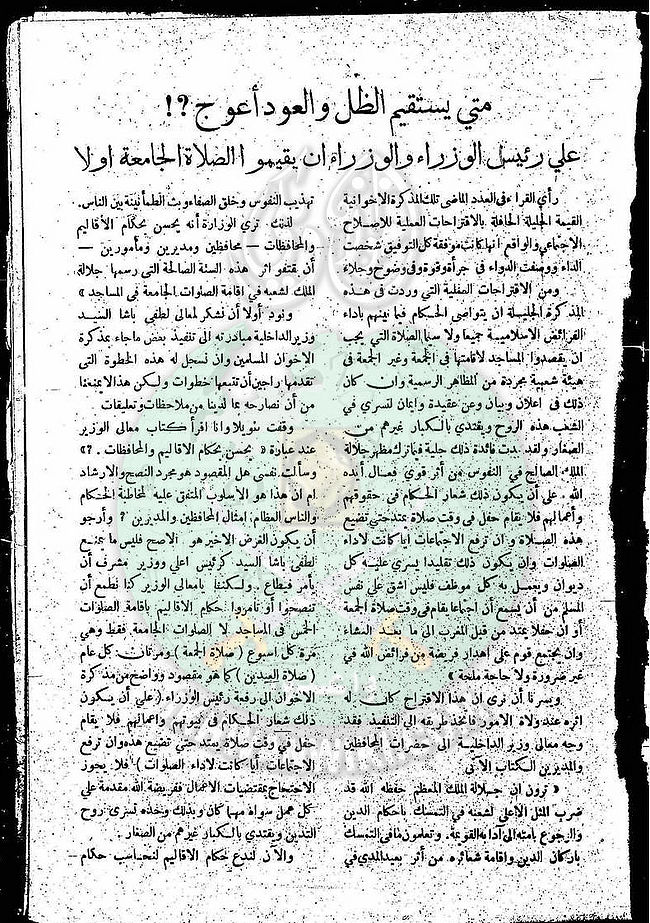 متى يستقيم الظل والعود أعوج ؟!
على رئيس الوزراء والوزراء ان يقيموا الصلاة الجامعة اولا
رأى القراء فى العدد الماضى تلك المذكرة الاخوانية
القيمة الجليلة الحافلة بالاقتراحات العملية للاصلاح
الاجتماعى والواقع انها كانت موفقة كل التوفيق شخصت
الداء ووصفت الدواء فى جرأة وقوة وفى وضوح وجلاء
ومن الاقتراحات العملية التى وردت فى هذه
المذكرة الجليلة ان يتواصى الحكام فيما بينهم باداء
الفرائض الاسلامية جميعا ولا سيما الصلاة التى يجب
ان يقصدوا المساجد لاقامتها فى الجمعة وغير الجمعة فى
هيئة شعبية مجردة من المظاهر الرسمية وان كان
ذلك فى اعلان وبيان وعن عقيدة وايمان لتسرى في
الشعب هذه الروح ويقتدى بالكبار غيرهم من
الصغار ولقد بدت فائدة ذلك جلية فيما ترك مظهر جلالة
الملك الصالح في النفوس من أثر قوى فعال أيده
الله . على أن يكون ذلك شعار الحكام فى حقوقهم
وأعمالهم فلا يقام حفل فى وقت صلاة يمتد حتى تضيع
هذه الصلاة وان ترفع الاجتماعات أيا كانت لاداء
الصلوات وان يكون ذلك تقليدا يسرى عليه كل
ديوان ويعمل به كل موظف فليس اشق على نفس
المسلم من أن يسمع أن اجتماعا يقام فى وقت صلاة الجمعة
أو ان حفلا يمتد من قبل المغرب الى ما بعد العشاء
وان يجتمع قوم على اهدار فريضة من فرائض الله فى
غير ضرورة ولا حاجة ملحة »
ويسرنا أن نرى ان هذا الاقتراح كان له
اثره عند ولاة الامور فاتخذ طريقه الى التنفيذ فقد
وجه معالى وزير الداخلية الى حضرات المحافظين
والمديرين الكتاب الآتى
« ترون ان جلالة الملك المعظم حفظه الله قد
ضرب المثل الاعلى لشعبه فى التمسك باحكام الدين
والرجوع بامته الى آدابه القويمة . وتعلمون ما فى التمسك
باركان الدين واقامة شعائره من أثر بعيد المدى في
تهذيب النفوس وخلق الصفاء وبث الطمأنينة بين الناس .
لذلك ترى الوزارة أنه يحسن بحكام الأقاليم
والمحافظات — محافظين ومديرين ومأمورين —
أن يقتفو اثر هذه السنة الصالحة التى رسمها جلالة
الملك لشعبه فى اقامة الصلوات الجامعة فى المساجد »
ونود أولا أن نشكر لمعالى لطفى باشا السيد
وزير الداخلية مبادرته الى تنفيذ بعض ماجاء بمذكرة
الاخوان المسلمين وان نسجل له هذه الخطوة التى
تقدمها راجين أن تتبعها خطوات ولكن هذا لا يمنعنا
من أن نصارحه بما لدينا من ملاحظات وتعليقات
وقفت طويلا وانا اقرأ كتاب معالى الوزير
عند عبارة « يحسن بحكام الاقاليم والمحافظات . ؟»
وسألت نفسى هل المقصود هو مجرد النصح والارشاد
ام ان هذا هو الاسلوب المتفق عليه لمخاطبة الحكام
والناس العظام امثال المحافظين والمديرين ؟ وأرجو
أن يكون الغرض الاخير هو الاصح فليس ما يمنع
لطفى باشا السيد كرئيس اعلى ووزير مشرف أن
يأمر فيطاع . ولكننا يا معالى الوزير كنا نطمع أن
تنصحوا أو تأمروا حكام الاقاليم باقامة الصلوات
الخمس فى المساجد لا الصلوات الجامعة فقط وهى
مرة كل اسبوع ( صلاة الجمعة ) ومرتان كل عام
( صلاة العيدين ) كما هو مقصود وواضح من مذكرة
الاخوان الى رفعة رئيس الوزراء ( على أن يكون
ذلك شعار الحكام فى بيوتهم واعمالهم فلا يقام
حفل فى وقت صلاة يمتد حتى تضيع هذه وان ترفع
الاجتماعات أيا كانت لاداء الصلوات ) فلا يجوز
الاحتجاج بمقتضيات الاعمال ففريضة الله مقدمة على
كل عمل سواه مهما كان وبذلك وحده تسرى روح
التدين ويقتدى بالكبار غيرهم من الصغار .
والآن لندع حكام الاقاليم لنحاسب حكام